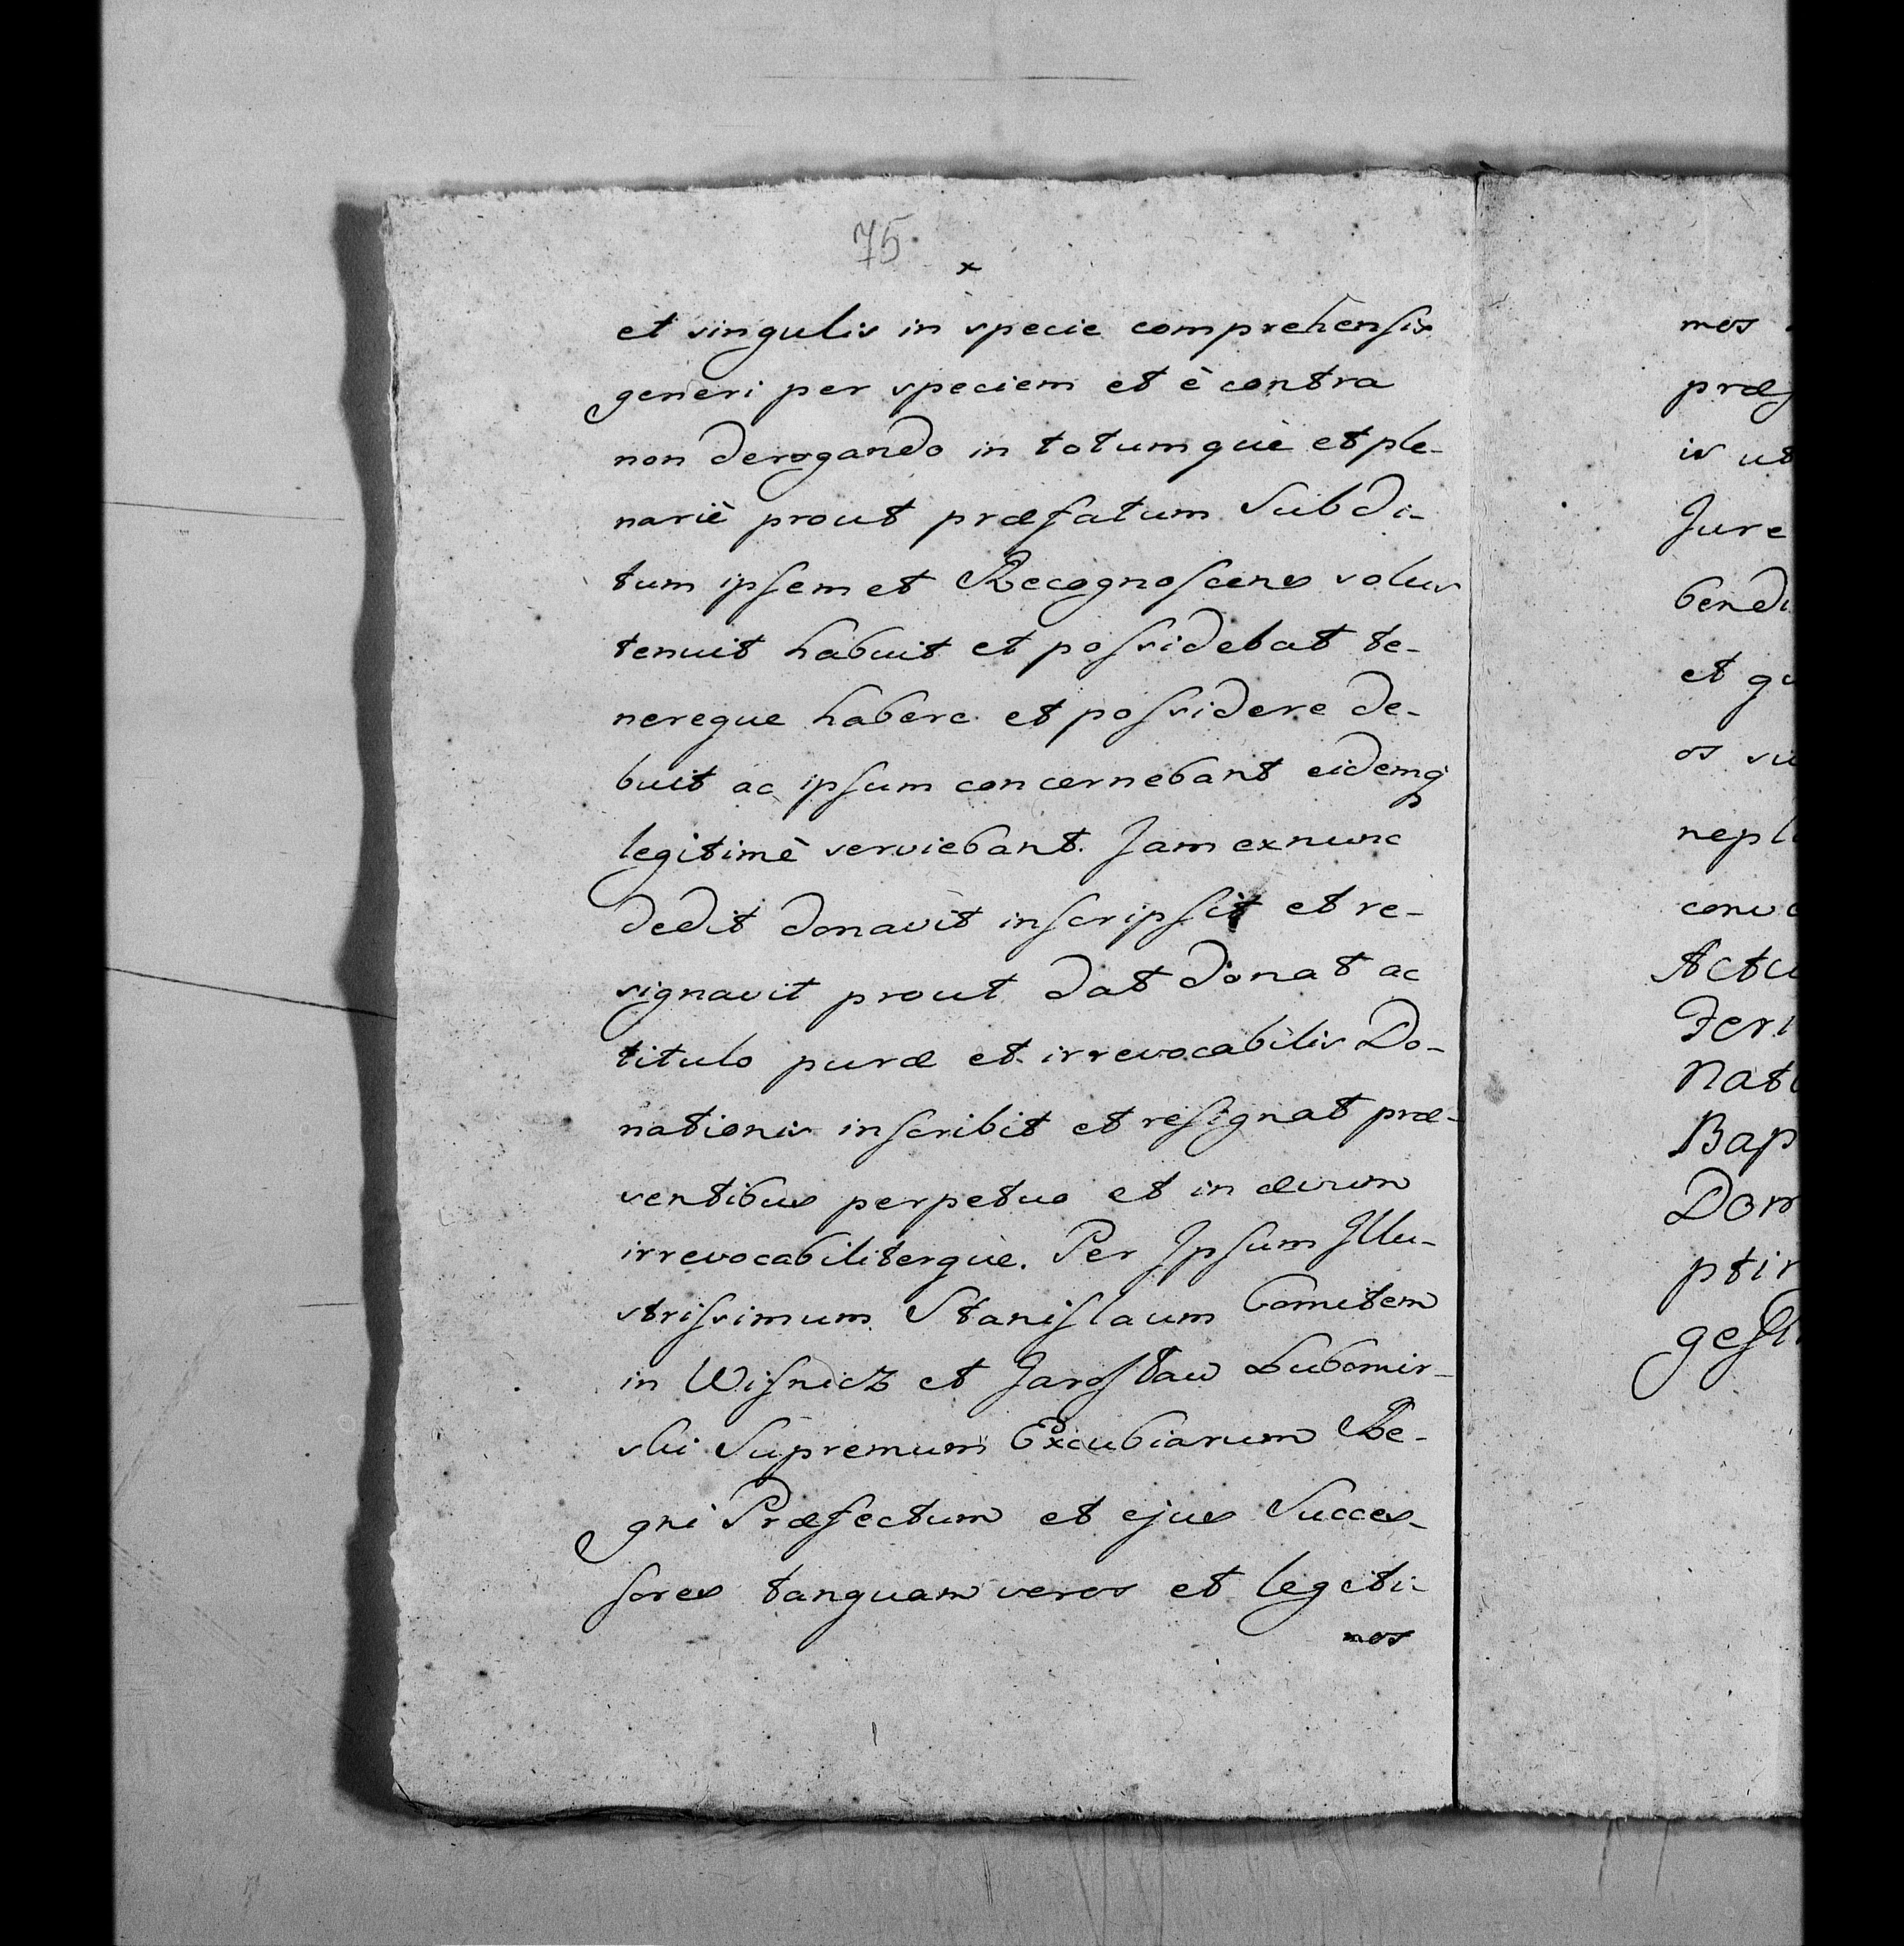 75
x
et singulis in specie comprehensis
generi per speciem et è contra
non derogando in totumquè et ple-
nariè prout præfatum Subdi-
tum ipsemet Recognoscens solus
tenuit habuit et possidebat te-
nereque habere et possidere de-
buit ac ipsum concernebant eidemq
legitimè serviebant. Jam exnunc
dedit donavit inscripsit et re-
signavit prout dat donat ac
titulo puræ et irrevocabilis Do-
nationis inscribit et resignat præ-
sentibus perpetuo et in ævum
irrevocabiliterquè. Per Ipsum Illu-
strissimum Stanislaum Comitem
in Wisnicz et Jarosław Lubomir-
ski Supremum Excubiarum Re-
gni Præfectum et ejus Succes-
sores tanquam veros et legiti-
mos
mos
præf
is ut
Jure
bendi
et qu
os su
nepl
conv
Actu
Feri
Nati
Bap
Dom
ptir
gest